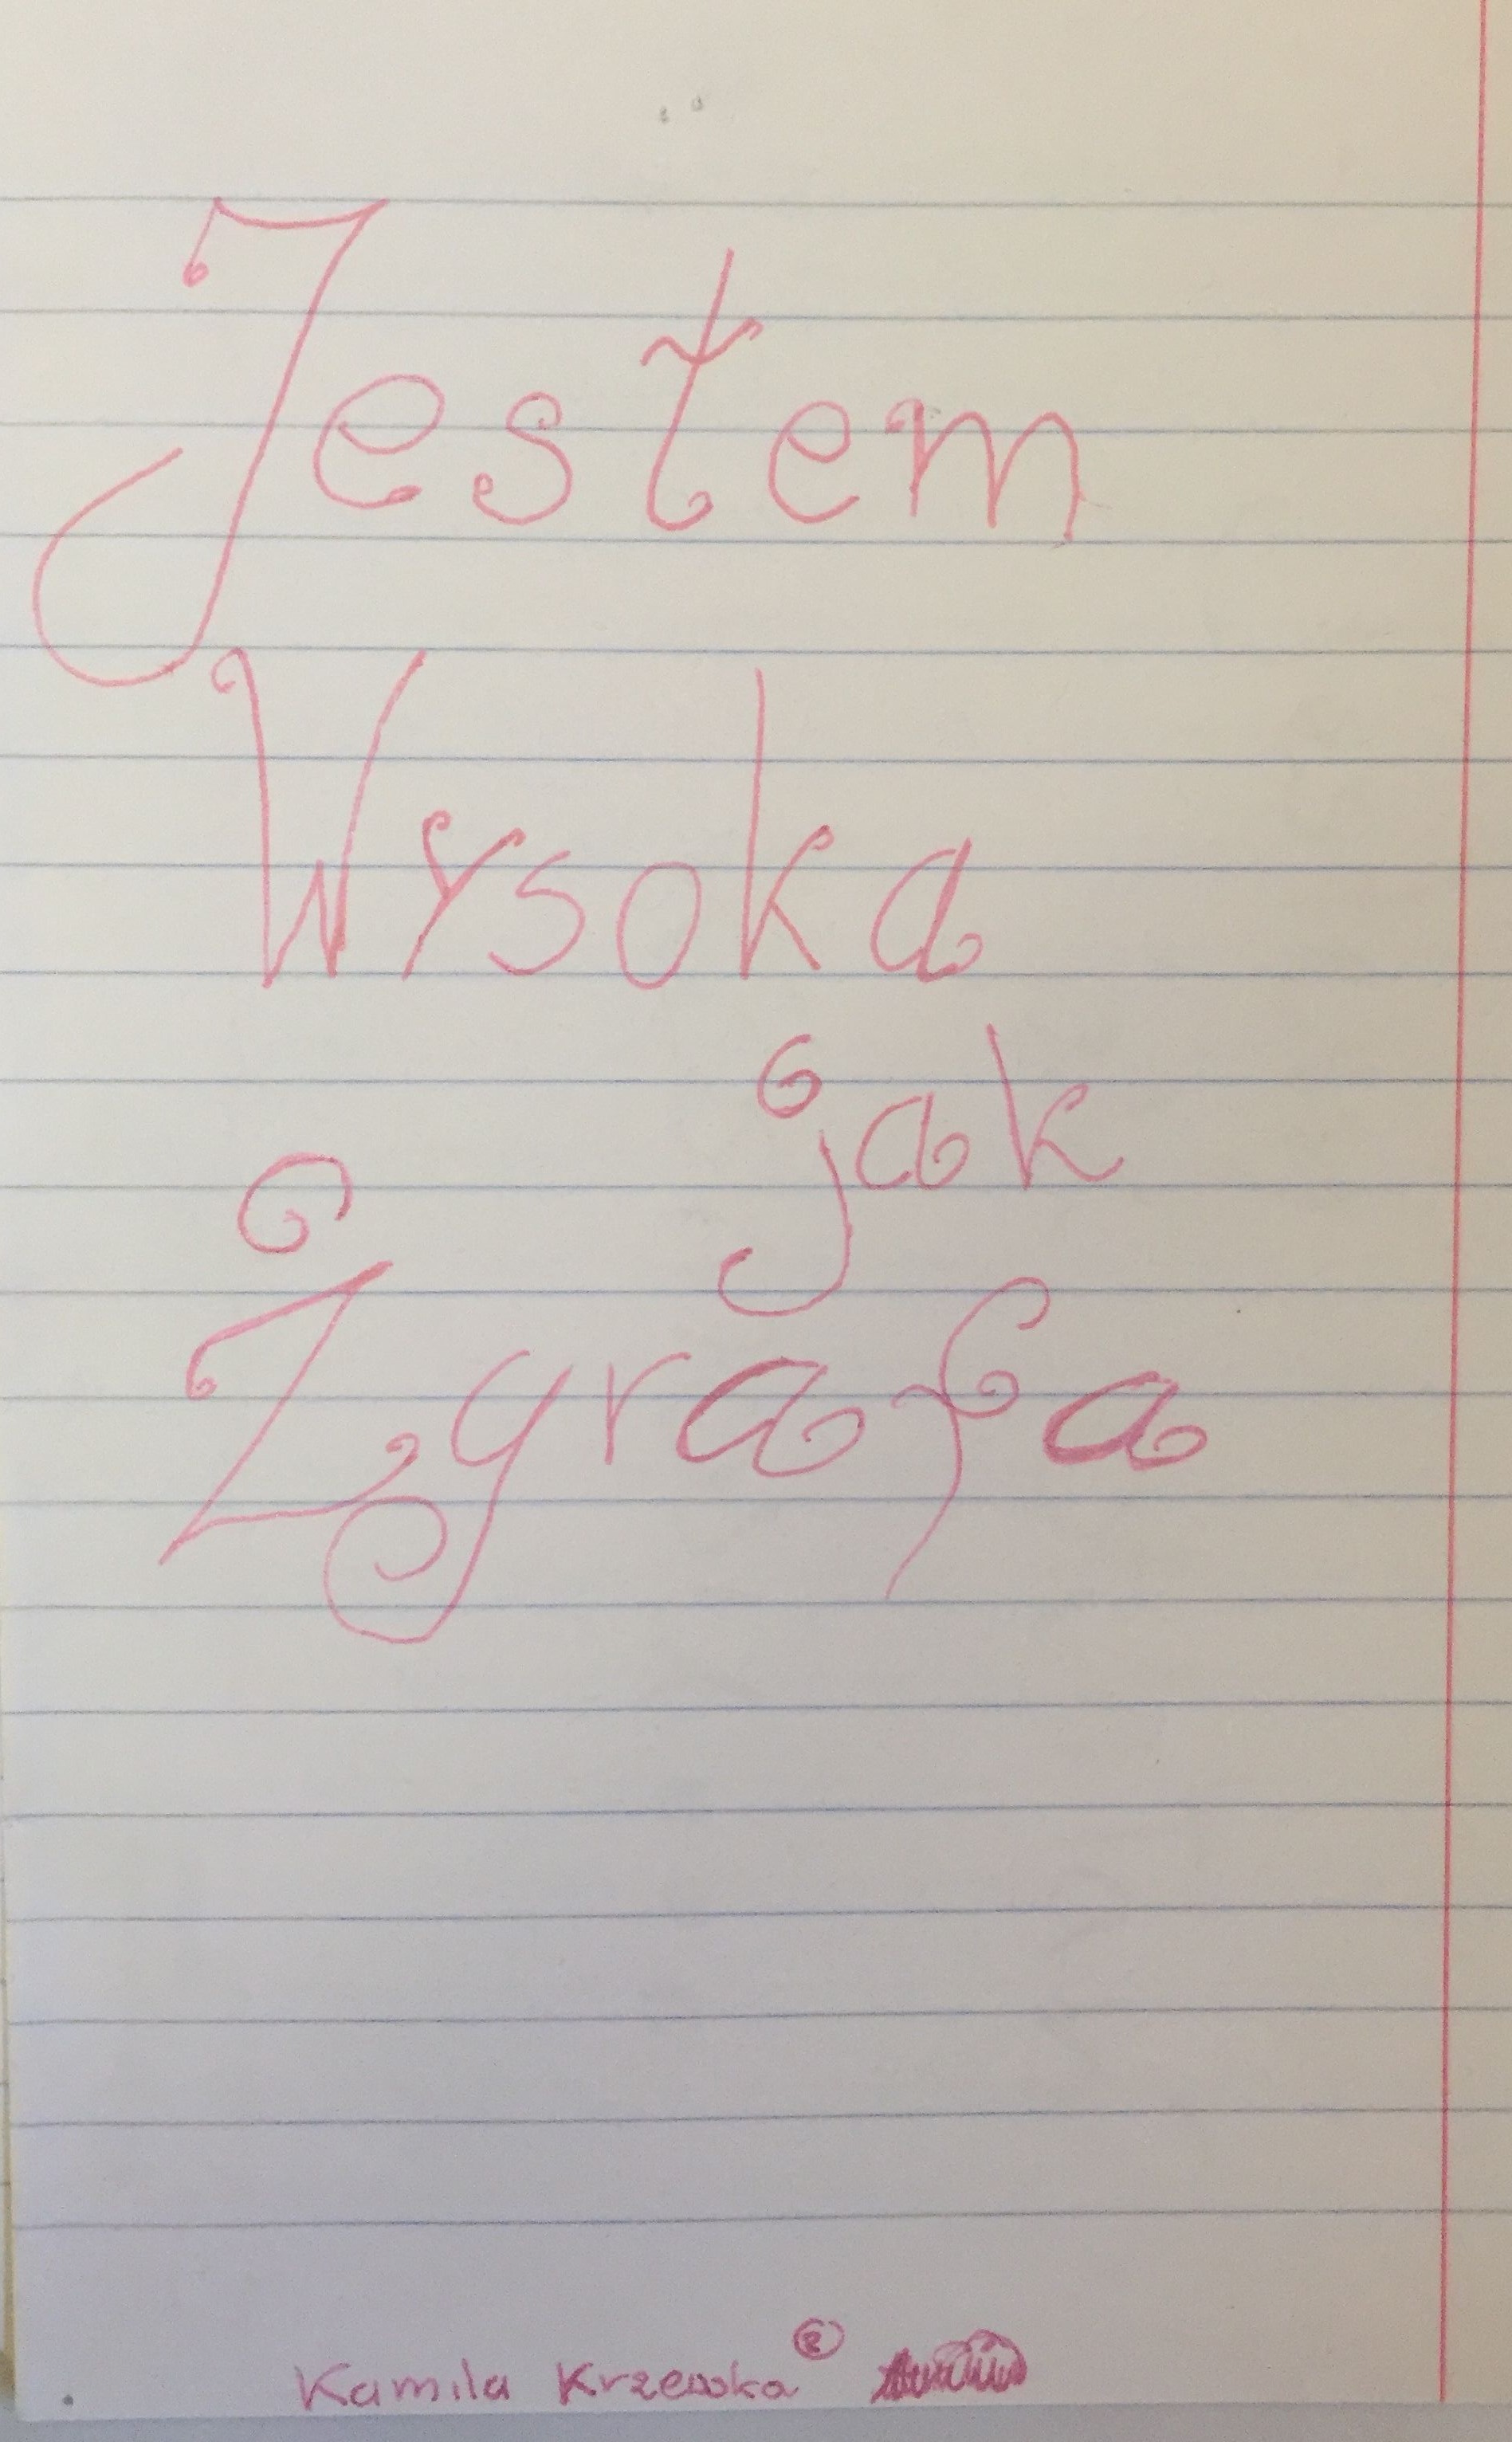 Jestem
Wysoka
jak
Żyrafa
Kamila Krzewska